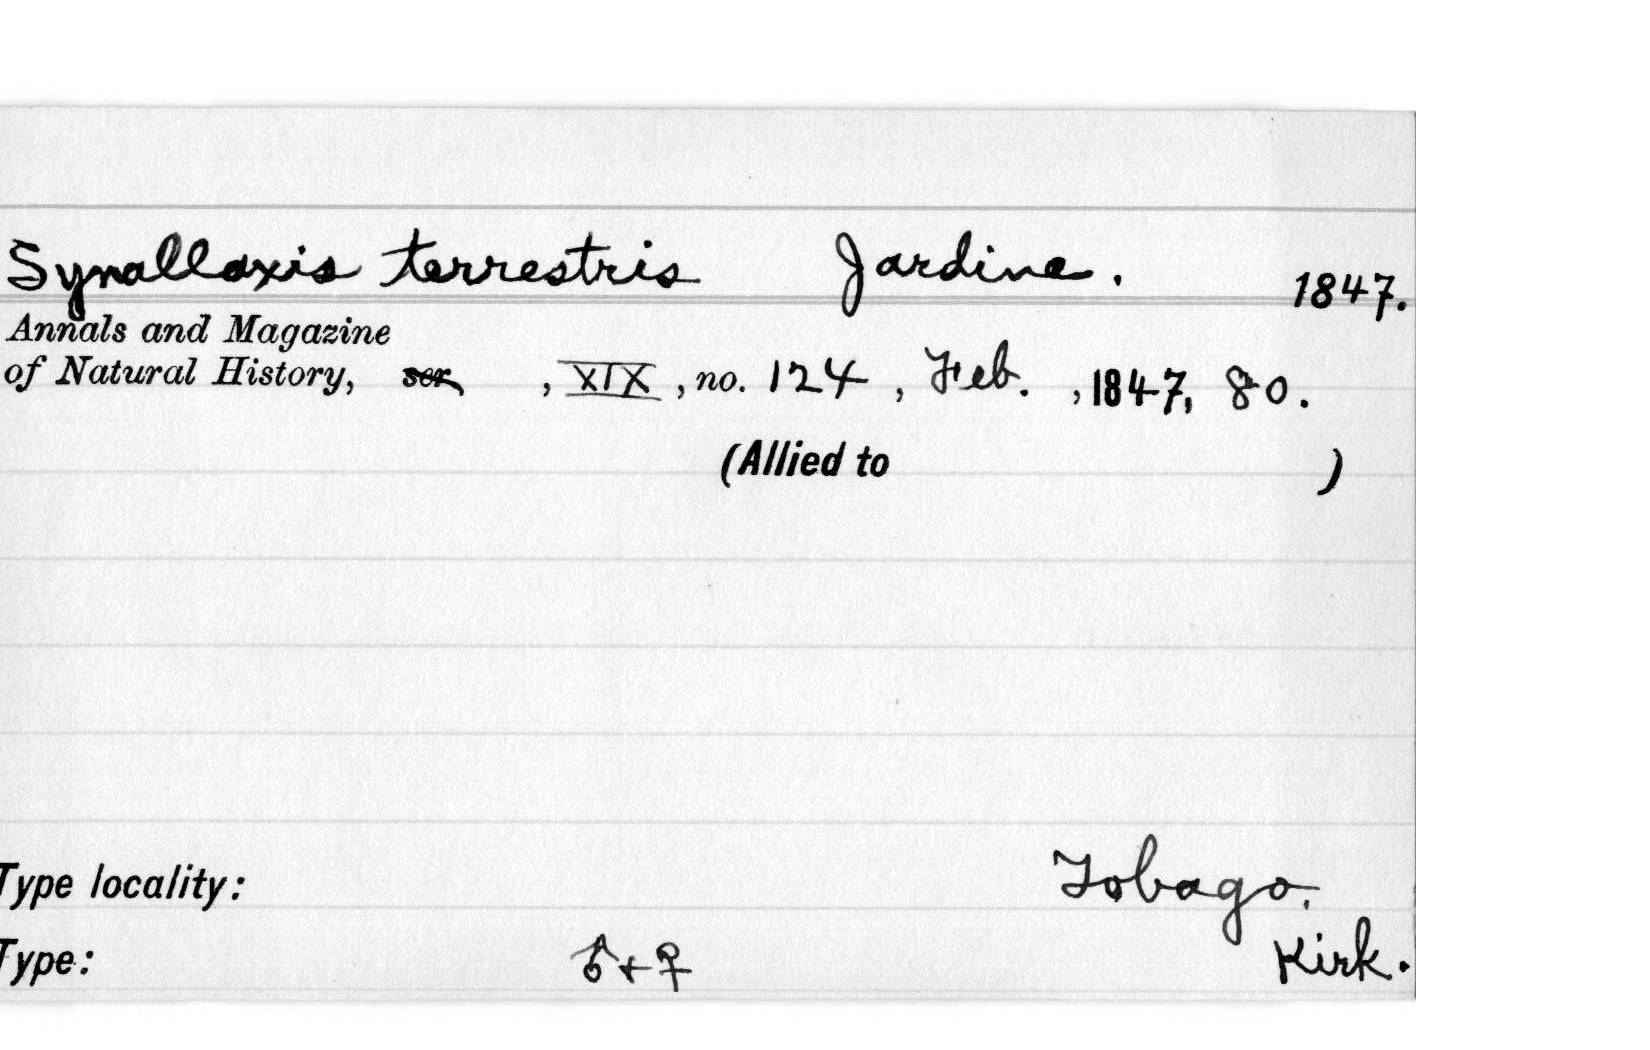 Synallaxis terrestris Jardine. 1847.
Annals and Magazine
of Natural History, ser. , XIX , no. 124 , Feb. , 1847, 80.
(Allied to )
Type locality: Tobago.
Type: ♂ + ♀ Kirk.